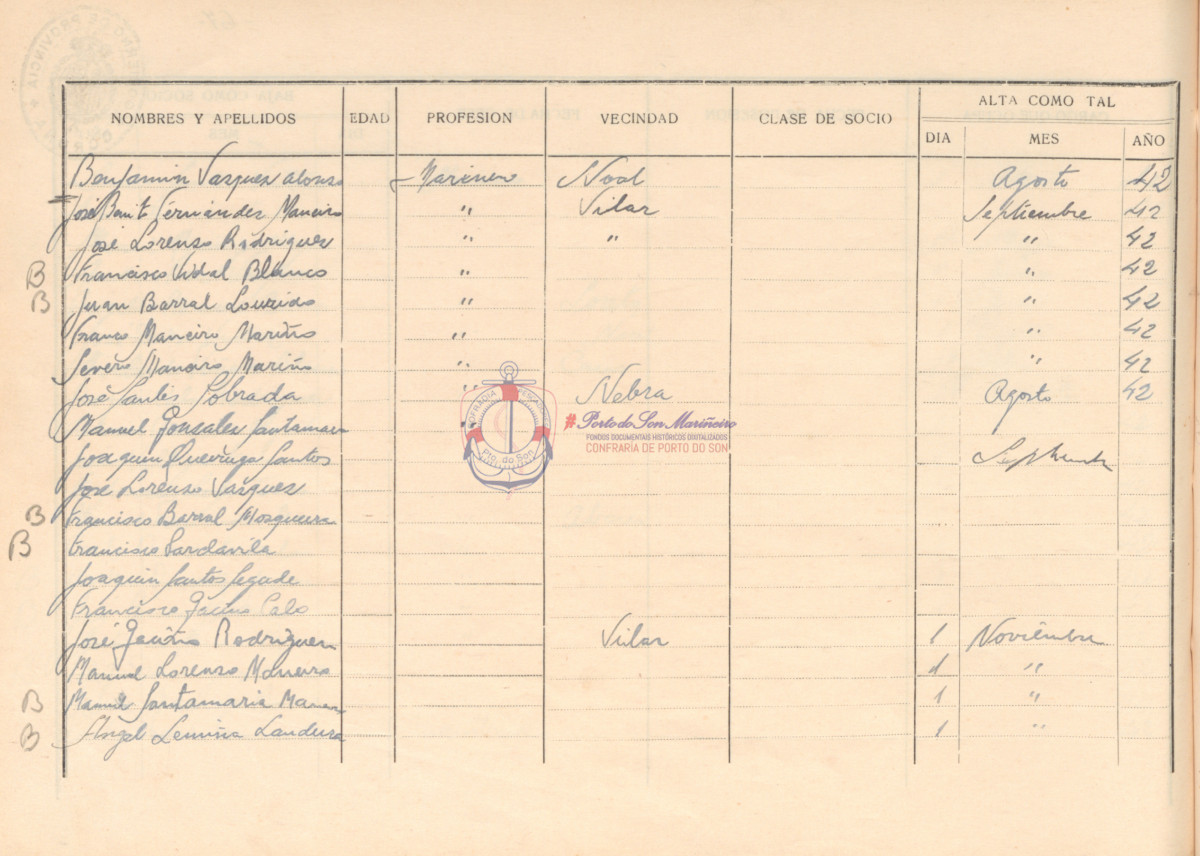 ALTA COMO TAL
NOMBRES Y APELLIDOS EDAD PROFESION VECINDAD CLASE DE SOCIO DIA MES AÑO
Benjamin Vasquez alonso Marinero Noal Agosto 42
José Benito Fernández Maneiro " Vilar Septiembre 42
José Lorenzo Rodriguez " " " 42
B Francisco Vidal Blanco " " 42
B Juan Barral Lourido " " 42
Franco Maneiro Mariño " " 42
Severo Maneiro Mariño " " 42
José Santos Sobrada " Nebra Agosto 42
Manuel Gonzalez Santamaria "
Joaquin Queiruga Santos Septiembre
José Lorenzo Vasquez
B Francisco Barral Mosquera
B Francisco Pardavila
Joaquin Santos Segade
Francisco Calo
José Rodriguez Vilar 1 Noviembre
Manuel Lorenzo Maneiro 1 "
B Manuel Santamaria 1 "
B Àngel Lemiña 1 "
COFRADIA PESCADORES
Pto. do Son
#Porto do Son Mariñeiro
FONDOS DOCUMENTAIS HISTÓRICOS DIXITALIZADOS
CONFRARÍA DE PORTO DO SON